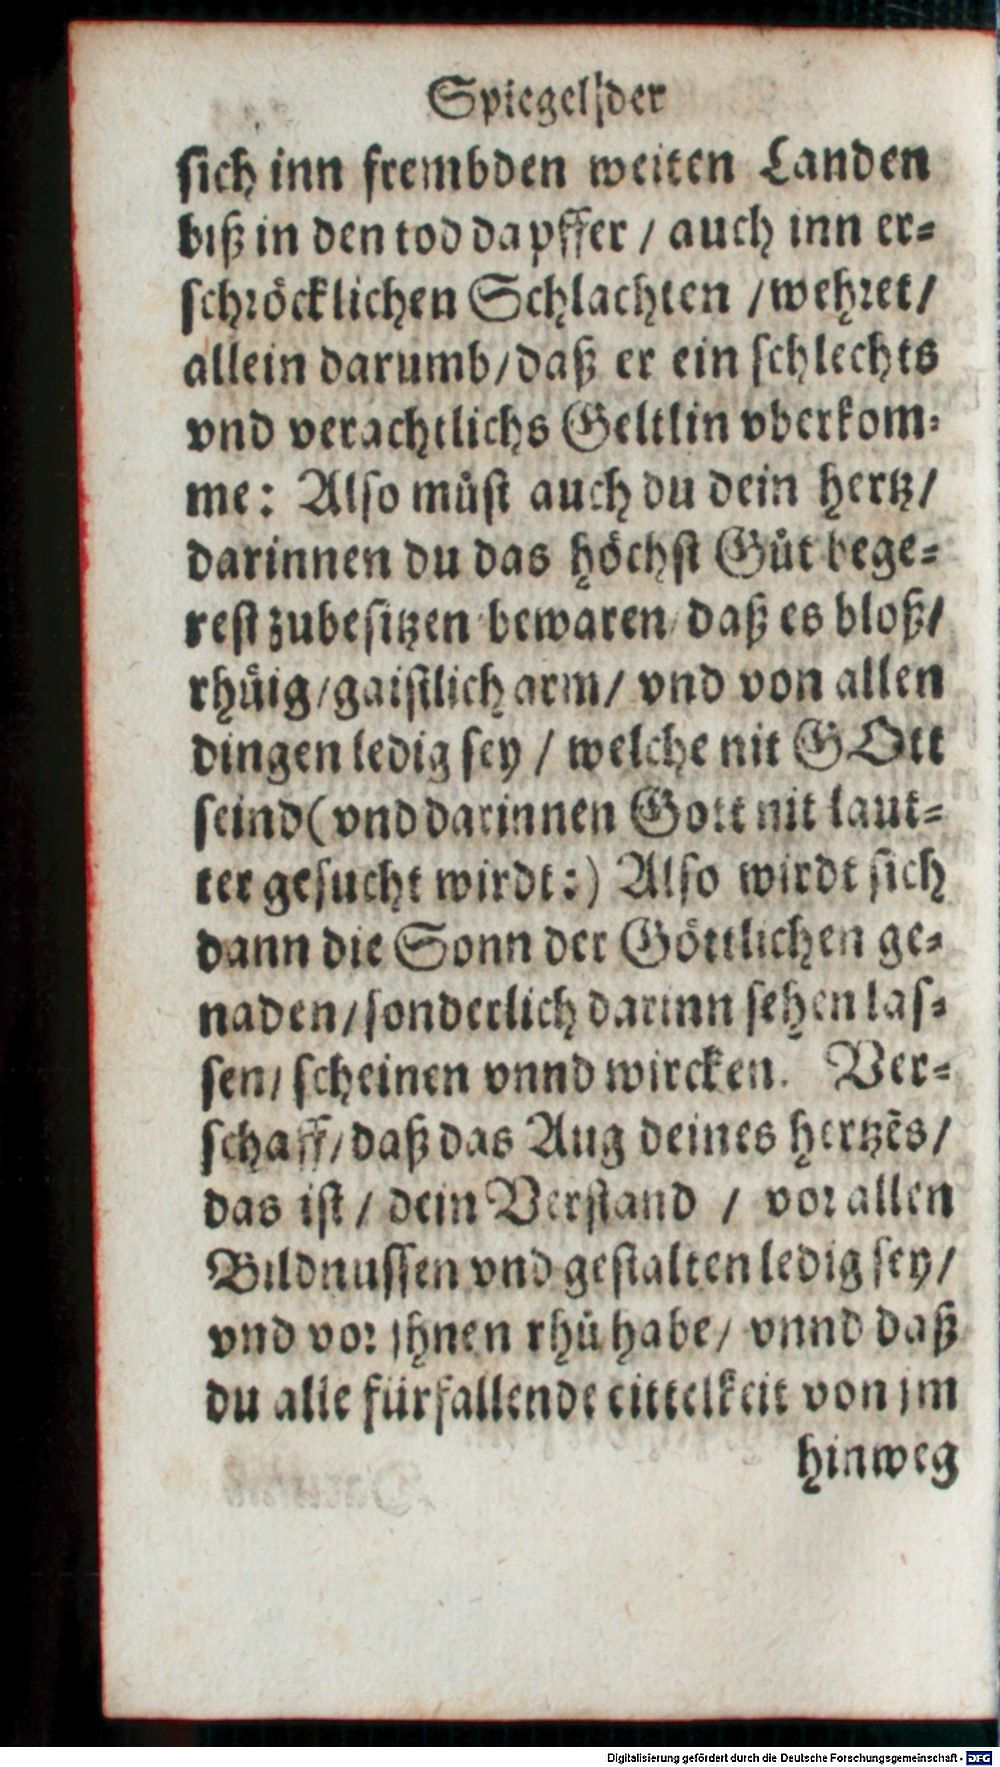 Spiegel der
sich inn frembden weiten Landen
biß in den tod dapffer / auch inn er=
schröcklichen Schlachten / wehret /
allein darumb / daß er ein schlechts
vnd verachtlichs Geltlin vberkom=
me: Also muͦst auch du dein hertz /
darinnen du das höchst Guͦt bege=
rest zubesitzen bewaren / daß es bloß /
rhuͤig / gaistlich arm / vnd von allen
dingen ledig sey / welche nit GOtt
seind (vnd darinnen Gott nit laut=
ter gesucht wirdt:) Also wirdt sich
dann die Sonn der Göttlichen ge=
naden / sonderlich darinn sehen las=
sen / scheinen vnnd wircken. Ver=
schaff / daß das Aug deines hertzēs /
das ist / dein Verstand / vor allen
Bildnussen vnd gestalten ledig sey /
vnd vor jhnen rhuͦ habe / vnnd daß
du alle fürfallende eittelkeit von jm
hinweg
Digitalisierung gefördert durch die Deutsche Forschungsgemeinschaft - DFG